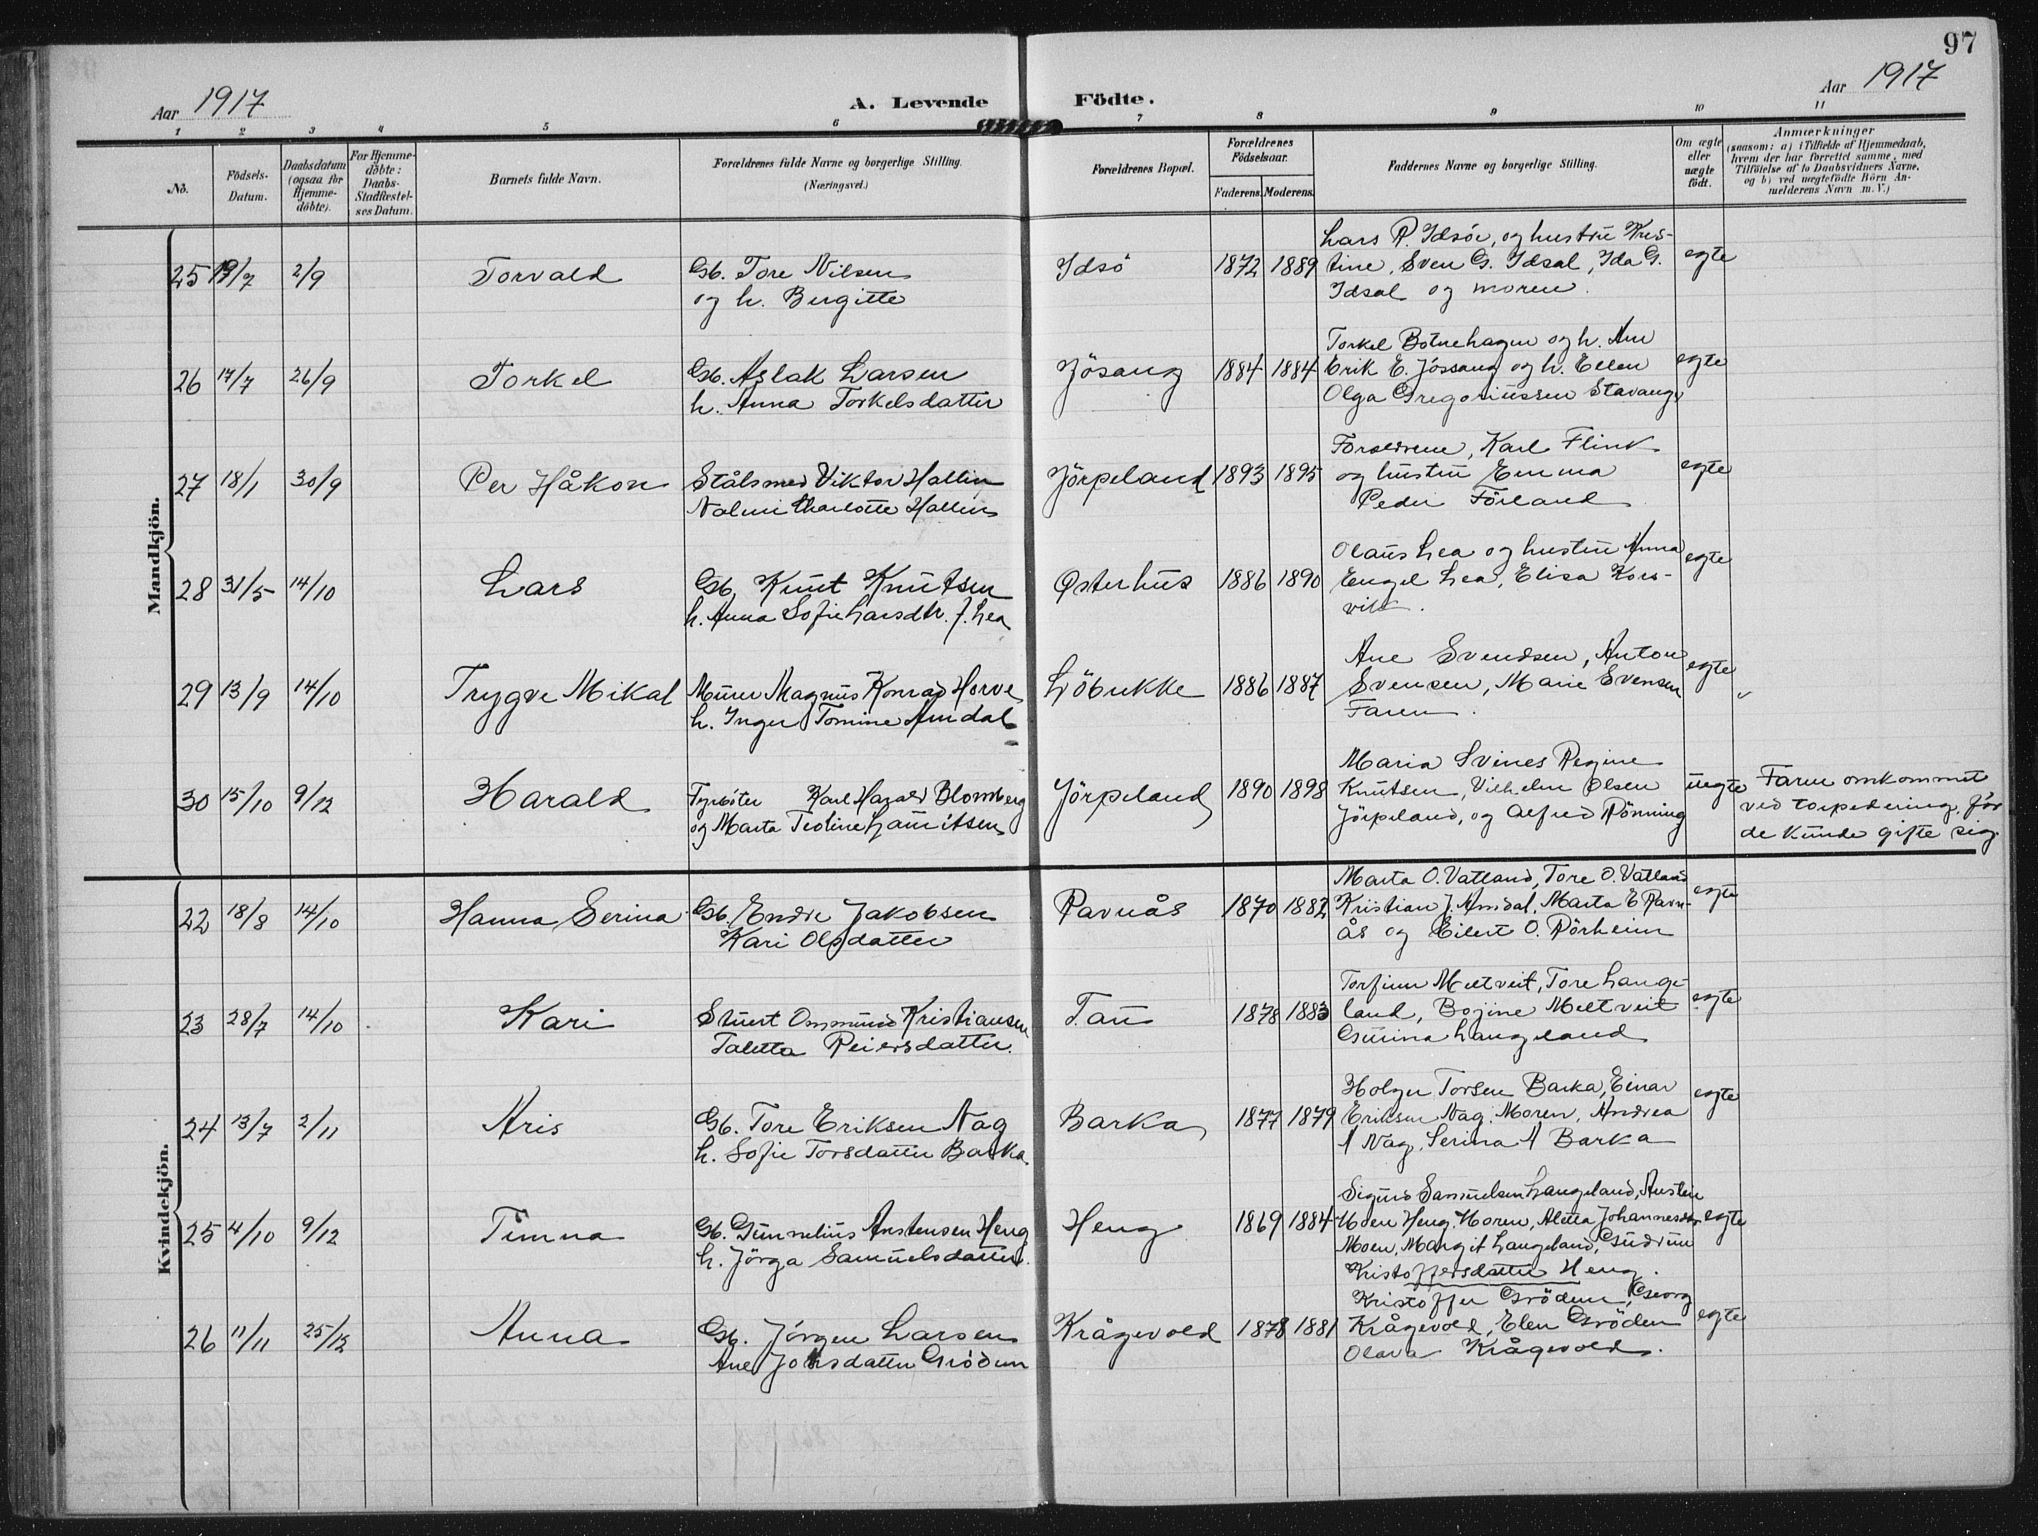 97
Aar 1917
A. Levende Födte.
Aar 1917
1 2 3 4 5 6 7 8 9 10 11
No.
Födsels-
Datum.
Daabsdatum
(ogsaa for
Hjemme-
döbte).
For Hjemme-
döbte:
Daabs-
Stadfæstel-
ses Datum.
Barnets fulde Navn.
Forældrenes fulde Navne og borgerlige Stilling.
(Næringsvei.)
Forældrenes Bopæl.
Forældrenes
Födselsaar.
Faderens. Moderens.
Faddernes Navne og borgerlige Stilling.
Om ægte
eller
uægte
födt.
Anmærkninger
(saasom: a) i Tilfælde af Hjemmedaab,
hvem der har forrettet samme, med
Tilföielse af to Daabsvidners Navne.
og b) ved uægtefödte Börn An-
melderens Navn m. V.)
Mandkjön.
25 /7 2/9 Torvald Gb. Tore Nilsen
og h. Bergitte
Idsö 1872 1889
Lars P. Idsöe, og hustru Kris-
tine, Sven G. Idsal, Ida G.
Idsal og moren.
egte
26 17/7 26/9 Torkel Gb. Aslak Larsen
h. Anna Torkelsdatter
Jösang 1884 1884
Torkel Botnehagen og h. Ane
Erik E. Jössang og h. Ellen
Olga Gregoriussen Stavanger
egte
27 18/1 30/9 Per Håkon Stålsmed Viktor Hallin
Charlotte Hallin
Jörpeland 1893 1895
Foreldrene, Karl Flink
og hustru Emma
Peder Förland
egte
28 31/5 14/10 Lars Gb. Knut Knutsen
h. Anna Sofie Larsdtr. f. Lea
Østerhus 1886 1890
Olaus Lea og hustru Anna
Engel Lea, Elisa Kors-
vik.
egte
29 13/9 14/10 Trygve Mikal Murer Magnus Konrad Horve
h. Inger Tomine Amdal
Löbrekke 1886 1887
Ane Svendsen, Anton
Svensen, Marie Svensen
Faren.
egte
30 15/10 9/12 Harald Fyrböter Karl Harald Blomberg
og Marta Teoline Lauritsen
Jörpeland 1890 1898
Maria Svines Regine
Knutsen, Vilhelm Olsen
Jörpeland, og Alfred Rönning
uegte
Faren omkommet
ved torpedering, för
de kunde gifte sig.
Kvindekjön.
22 18/8 14/10 Hanna Serina Gb. Endre Jakobsen
Kari Olsdatter
Ravnås 1870 1882
Marta O. Vatland, Tore O. Vatland
Kristian J. Amdal, Marta E Ravn-
ås og Eilert O. Rörheim
egte
23 28/7 14/10 Kari Stuert Ommund Kristiansen
Taletta Reiersdatter.
Tau 1878 1883
Torfinn Meltveit, Tore Lange-
land, Bojine Meltveit
Gurina Langeland
egte
24 13/7 2/11 Aris Gb. Tore Eriksen Nag
h. Sofie Torsdatter Barka
Barka 1877 1879
Holger Torsen Barka, Einar
Eriksen Nag. Moren, Andrea
A Nag, Serina A Barka
egte
25 4/10 9/12 Timna Gb. Gunnelius Anstensen Heng
h. Jörga Samuelsdatter.
Heng 1869 1884
Sigurd Samuelsen Langeland, Austin
Moen Heng. Moren, Aletta Johannesdtr
Moen, Margit Langeland, Gudrun
Kristoffersdatter Heng.
egte
26 11/11 25/12 Anna Gb. Jörgen Larsen
Ane Jonsdatter Gröden
Krågevold 1878 1881
Kristoffer Gröden, Georg
Krågevold, Elen Gröden
Olava Krågevold.
egte